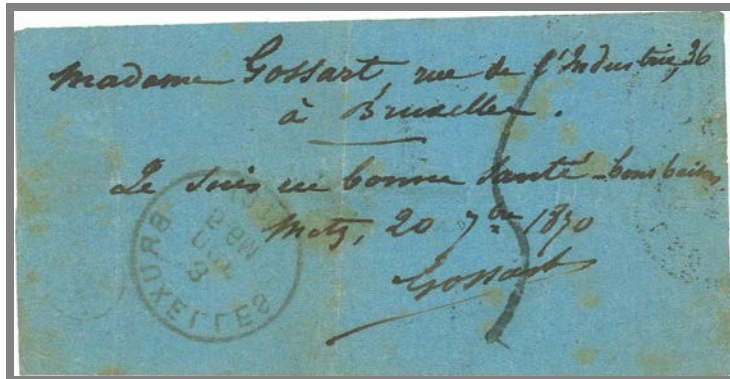 Madame Gossart, rue de l'Industrie, 36
à Bruxelles.
Je suis en bonne santé - bons baisers
Metz, 20 7bre 1870
Gossart
BRUXELLES
3
OCT